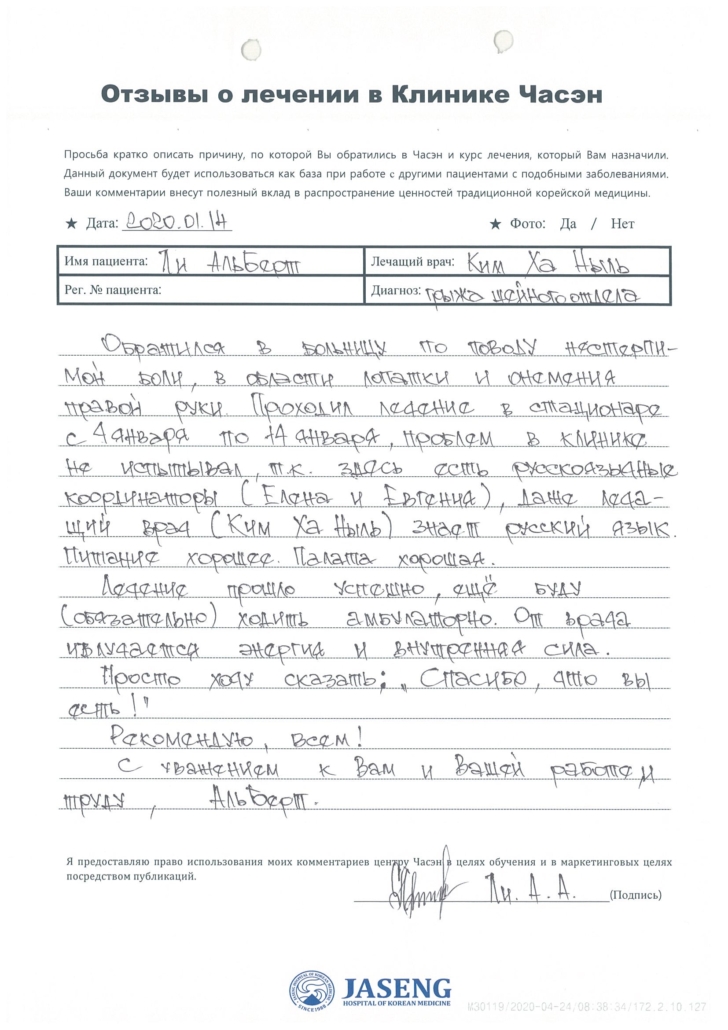 Отзывы о лечении в Клинике Часэн
Просьба кратко описать причину, по которой Вы обратились в Часэн и курс лечения, который Вам назначили.
Данный документ будет использоваться как база при работе с другими пациентами с подобными заболеваниями.
Ваши комментарии внесут полезный вклад в распространение ценностей традиционной корейской медицины.
★ Дата: 2020.01.14 ★ Фото: Да / Нет
Имя пациента: Ли Альберт Лечащий врач: Ким Ха Ныль
Рег. № пациента: Диагноз: грыжа шейного отдела
Обратился в больницу по поводу нестерпи-
мой боли, в области лопатки и онемения
правой руки. Проходил лечение в стационаре
с 4 января по 14 января, проблем в клинике
не испытывал, т.к. здесь есть русскоязычные
координаторы (Елена и Евгения), даже леча-
щий врач (Ким Ха Ныль) знает русский язык.
Питание хорошее. Палата хорошая.
Лечение прошло успешно, ещё буду
(обязательно) ходить амбулаторно. От врача
излучается энергия и внутренная сила.
Просто хочу сказать; „Спасибо, что вы
есть!"
Рекомендую, всем!
С уважением к Вам и Вашей работе и
труду, Альберт.
Я предоставляю право использования моих комментариев центру Часэн в целях обучения и в маркетинговых целях
посредством публикаций.
Ли. А. А. (Подпись)
JASENG
HOSPITAL OF KOREAN MEDICINE
SINCE 1988
M30119/2020-04-24/08:38:34/172.2.10.127